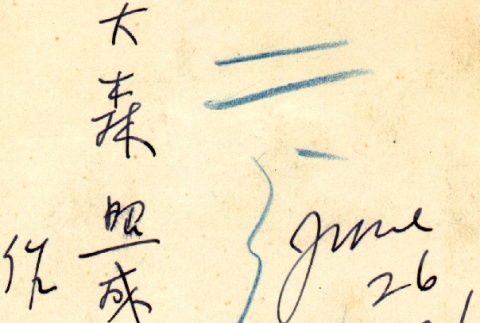 大森照成
作
June
26